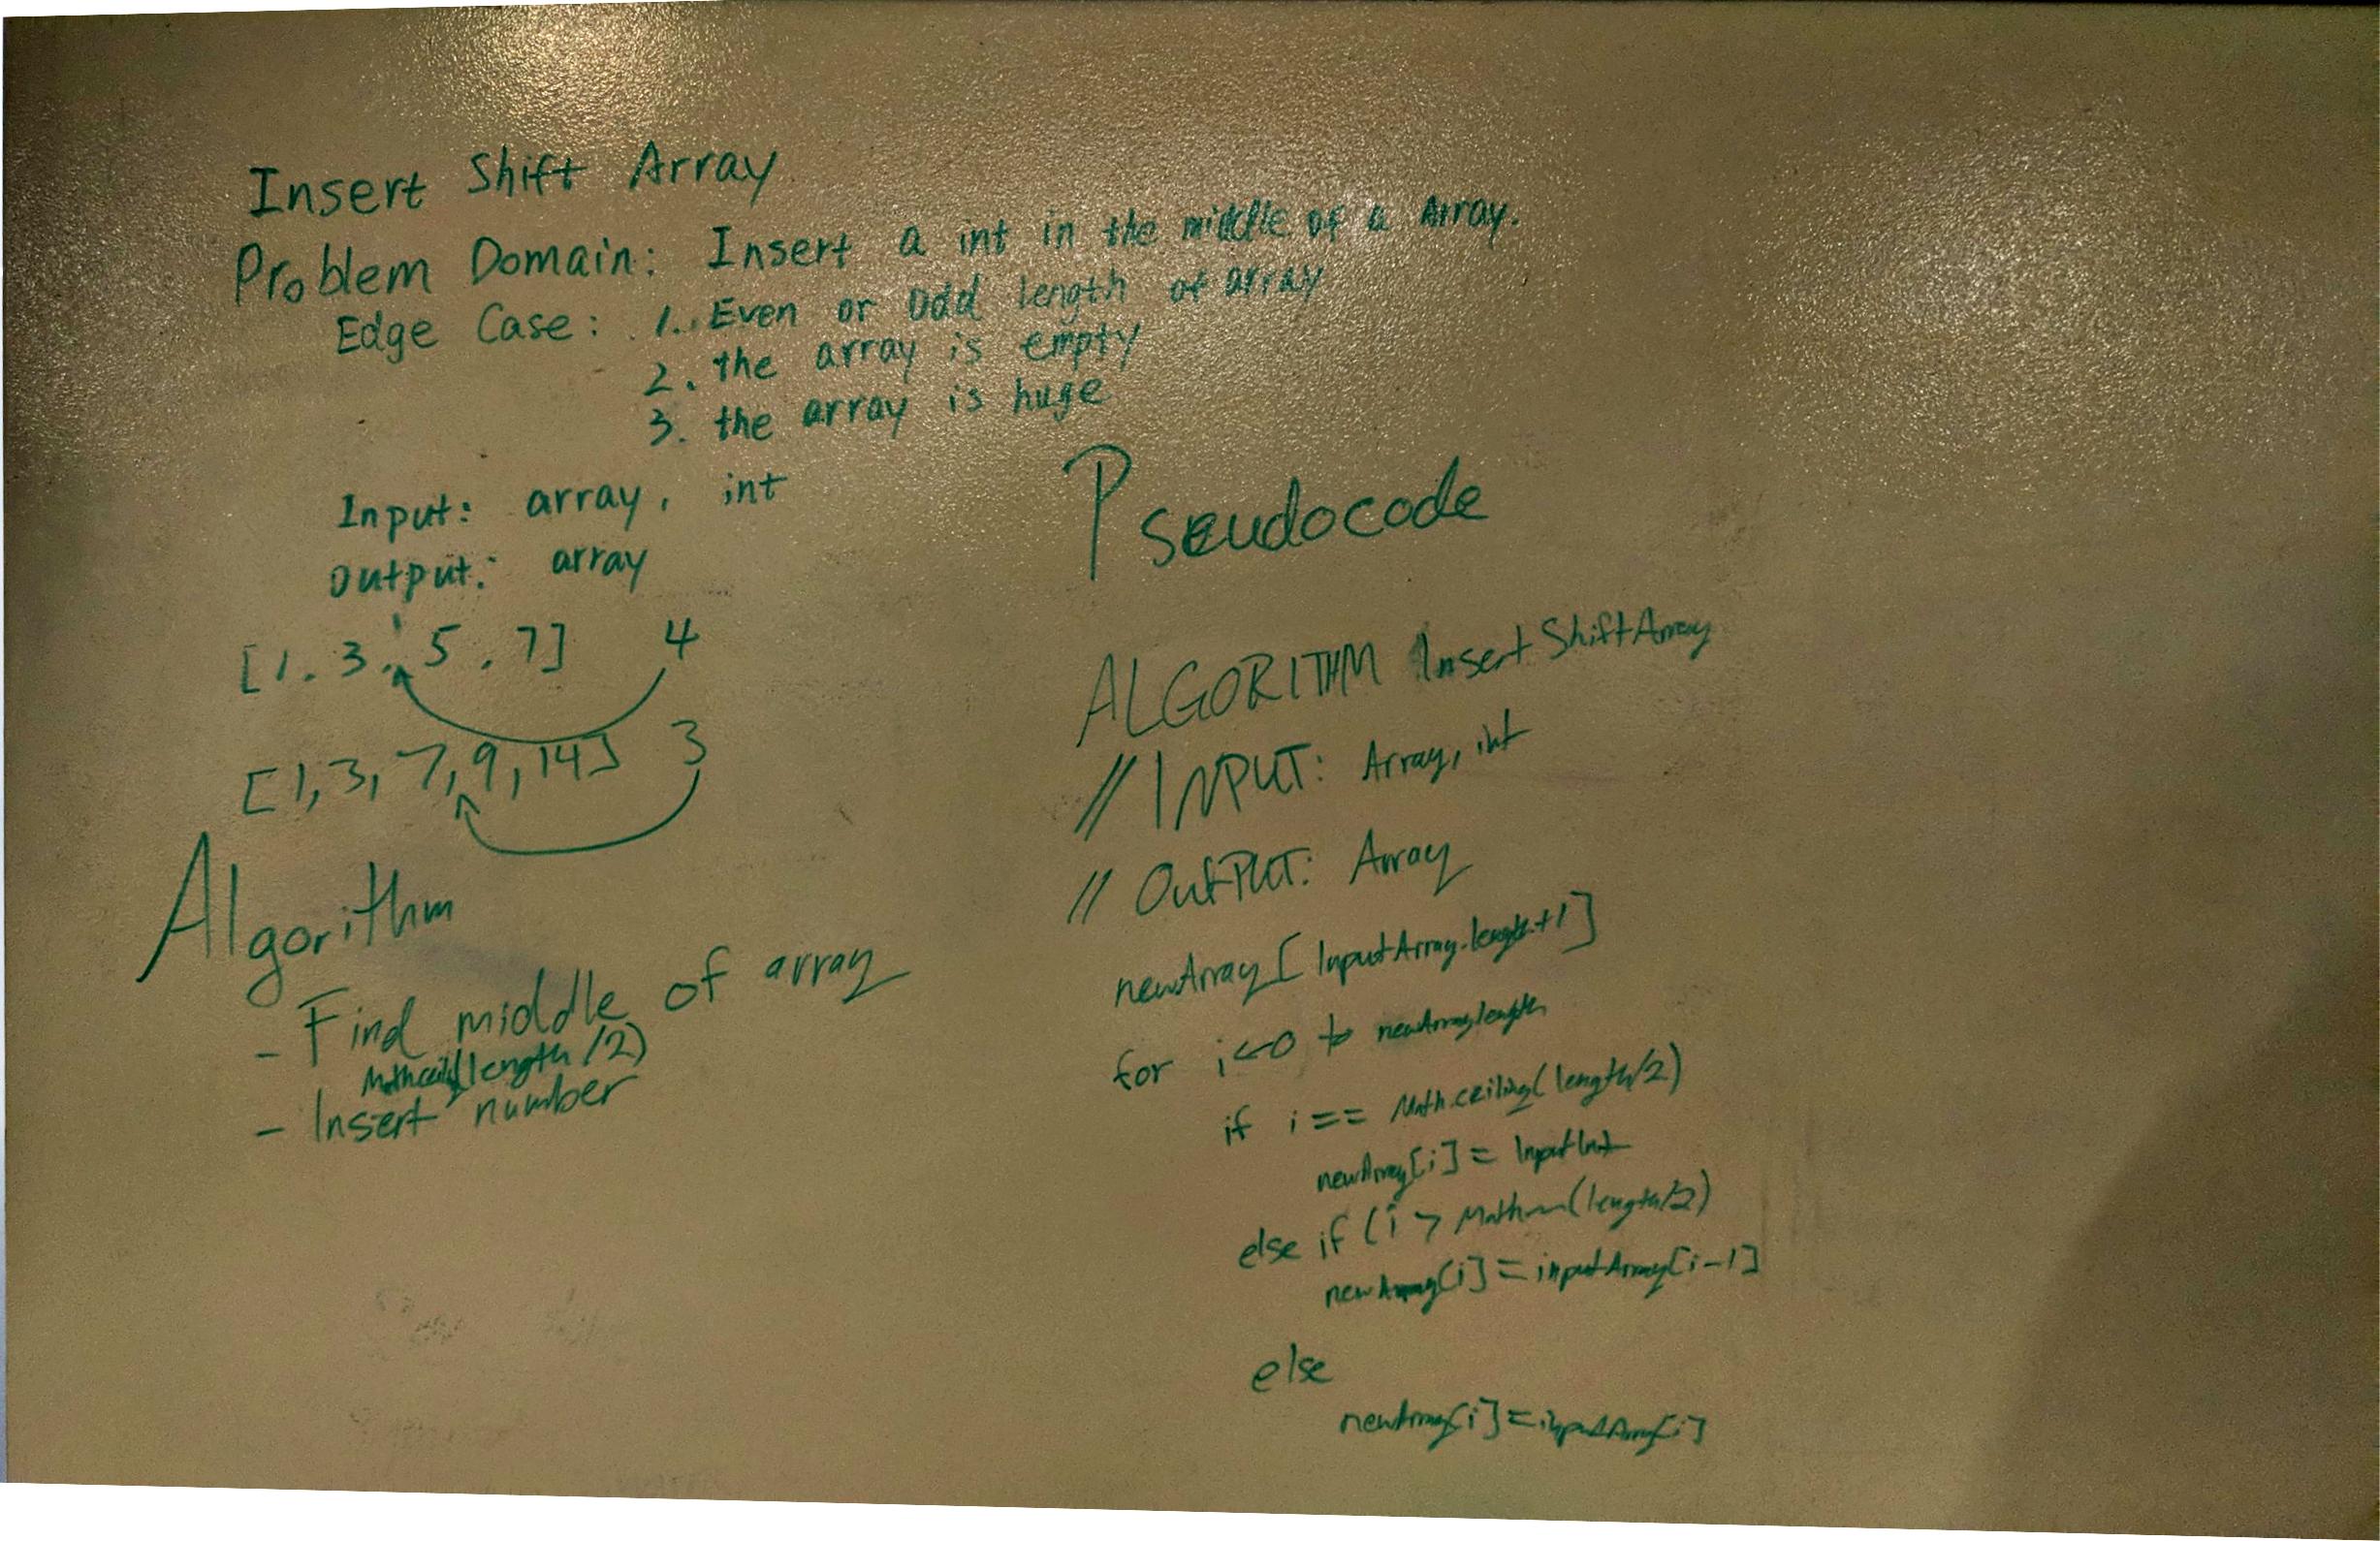 Insert Shift Array
Problem Domain: Insert a int in the middle of a Array.
Edge Case: 1. Even or Odd length of array
2. the array is empty
3. the array is huge
Input: array, int
Output: array
[1, 3, 5, 7] 4
[1, 3, 7, 9, 14] 3
Algorithm
- Find middle of array
(length/2)
- Insert number
Pseudocode
ALGORITHM InsertShiftArray
// INPUT: Array, int
// OutPUT: Array
newArray[InputArray.length+1]
for i<-0 to newArray.length
if i == Math.ceiling(length/2)
newArray[i] = InputInt
else if (i > (length/2)
newArray[i] = inputArray[i-1]
else
newArray[i] = inputArray[i]